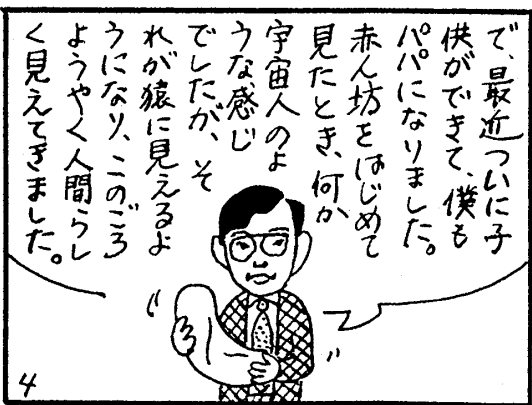 で、最近ついに子
供ができて、僕も
パパになりました。
赤ん坊をはじめて
見たとき、何か
宇宙人のよ
うな感じ
でしたが、そ
れが猿に見えるよ
うになり、このごろ
ようやく人間らし
く見えてきました。
4